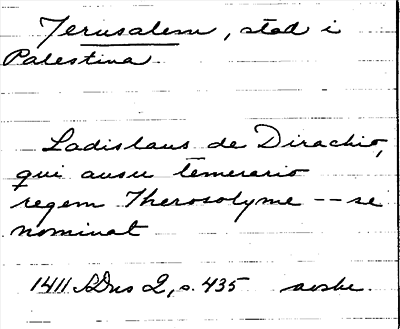 Jerusalem, stad i
Palestina
Ladislaus de Dirachio,
qui ausu temerario
regem Jherosolyme -- se
nominat
1411 SDns 2, s. 435 avskr.